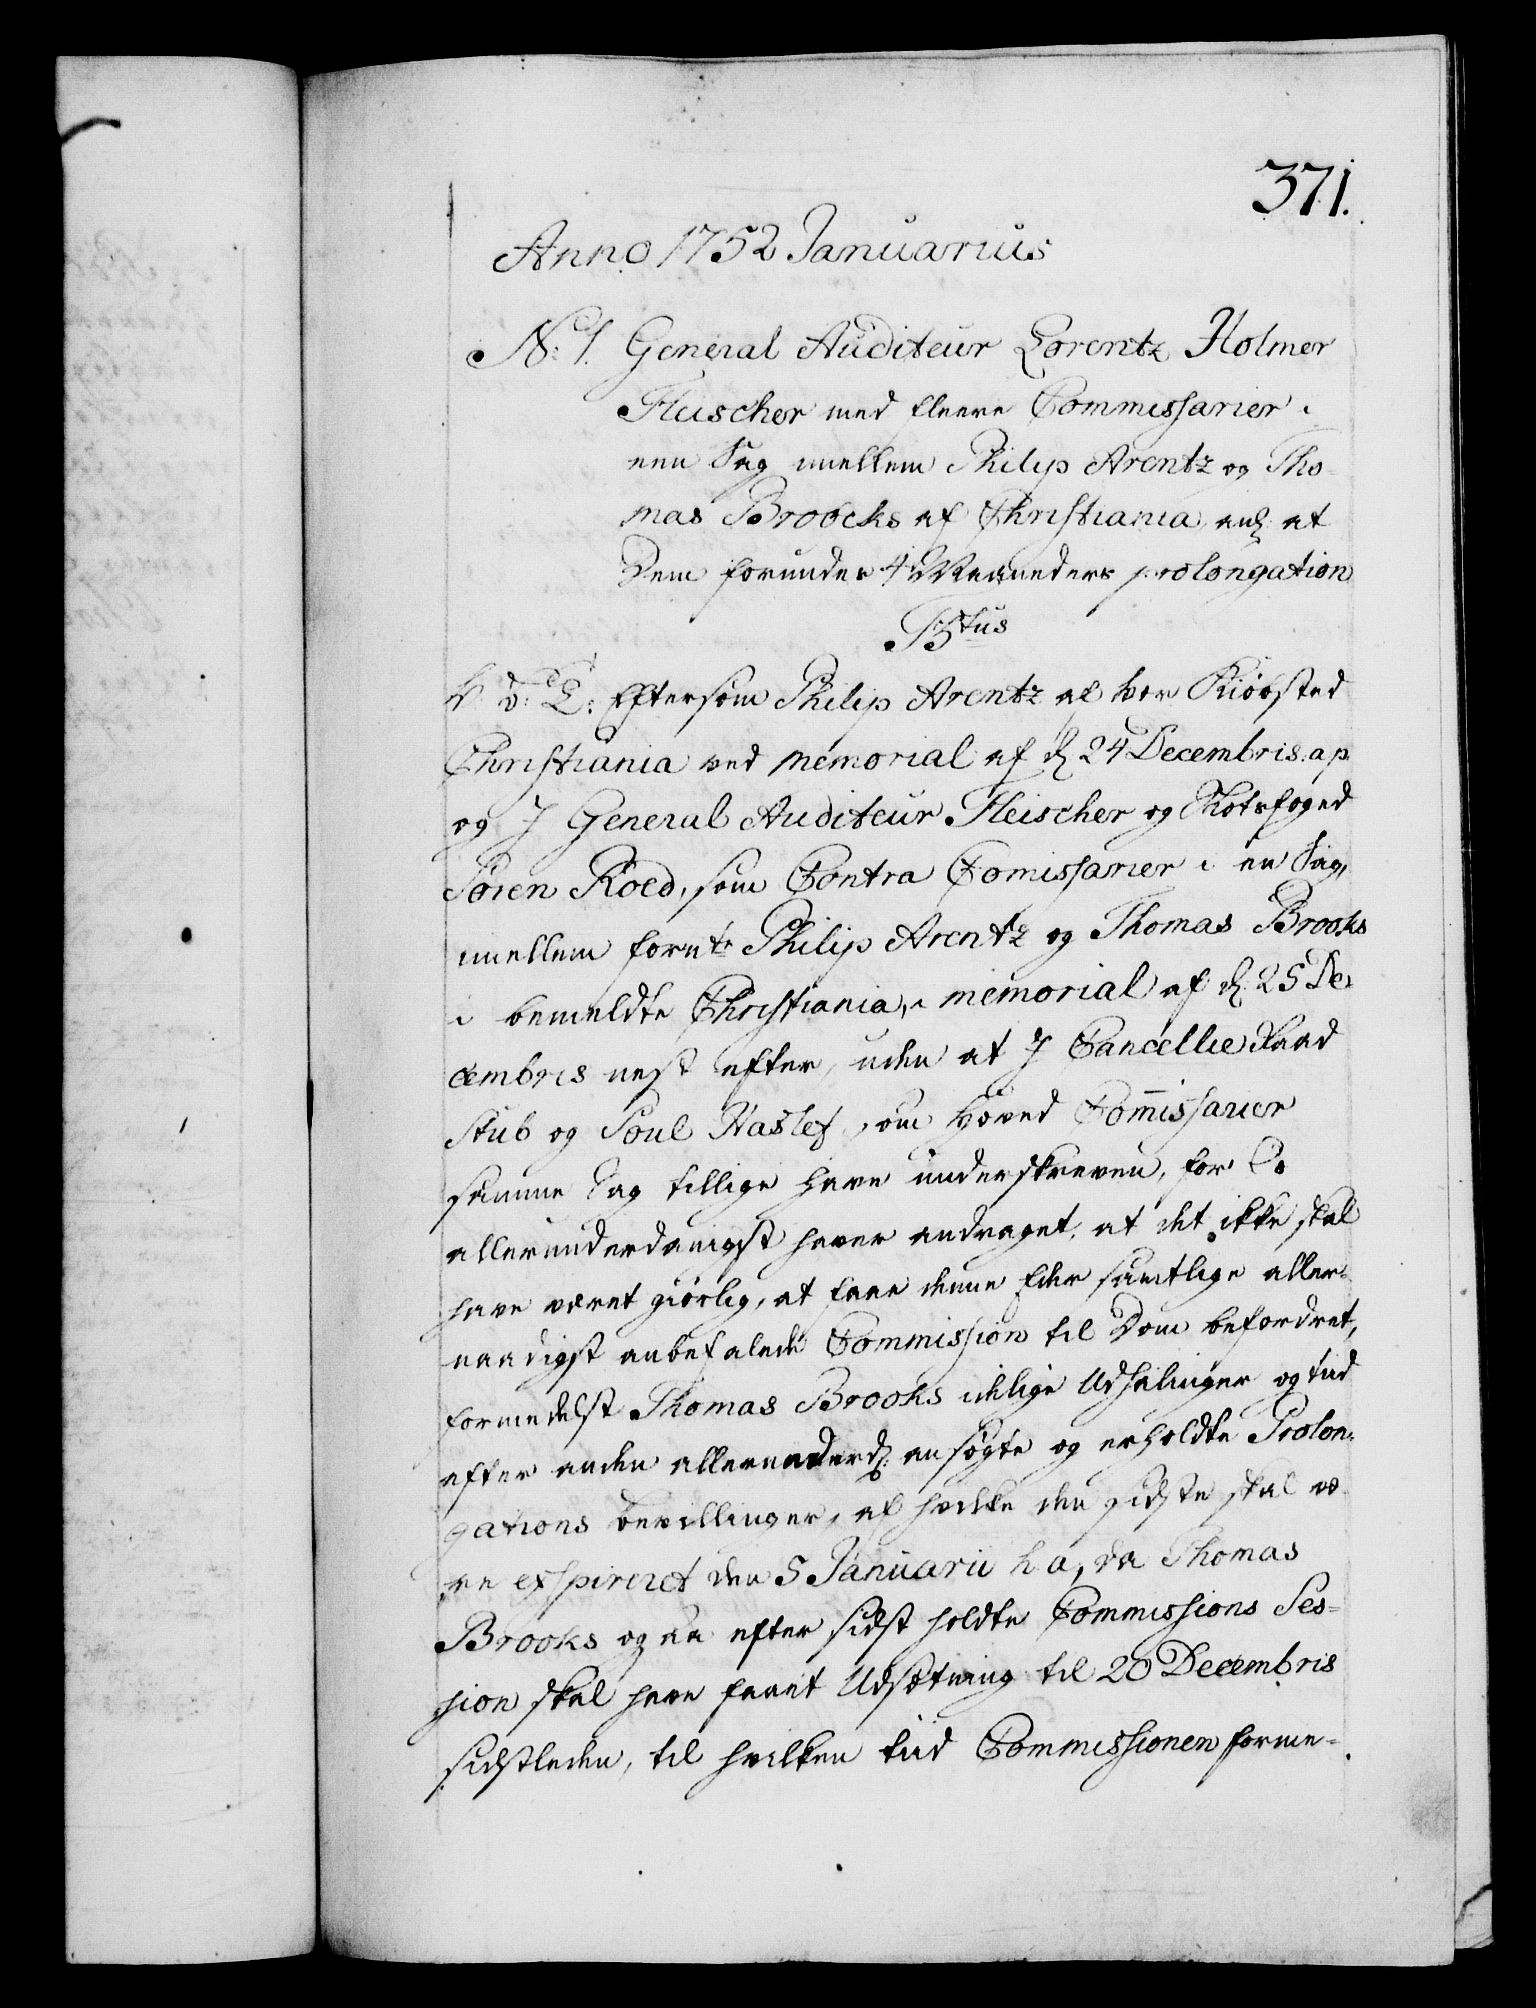 371.
Anno 1752 Januarius
No: 1. General Auditeur Lorentz Holmer
Fleischer med fleere Commissarier i
een Sag imellem Philip Arentz og Tho-
mas Broocks af Christiania, anl: at
Dem forundes 4 Maaneders prolongation
F5tus
V: G: T: Eftersom Philip Arentz af vor Kiøbsted
Christiania ved memorial af d: 24 Decembris: a p
og I General Auditeur Fleischer og Slotsfoged
Søren Roed, som Contra Comissarier i en Sag,
imellem fornte Philip Arentz og Thomas Brooks
i bemeldte Christiania, i memorial af d: 25 De-
cembris nest efter, uden at I Cancellie Raad
Stub og Poul Haslef, som Hoved Commissarier
samme Sag tillige have underskreven, for Os
allerunderdanigst haver andraget, at det ikke skal
have været giørlig, at faae denne Eder samtlige aller-
naadigst anbefalede Commission til Dom befordret,
formedelst Thomas Brooks idelige Udhalinger og tiid
efter anden allerunderd: ansøgte og erholdte Prolon-
gations bevillinger, af hvilke den sidste skal væ-
re exspireret den 5 Januarii h. a, da Thomas
Brooks ogsaa efter sidst holdte Commissions Ses-
sion skal have faaet Udsetning til 20 Decembris
sidstleden, til hvilken tiid Commissionen forme-